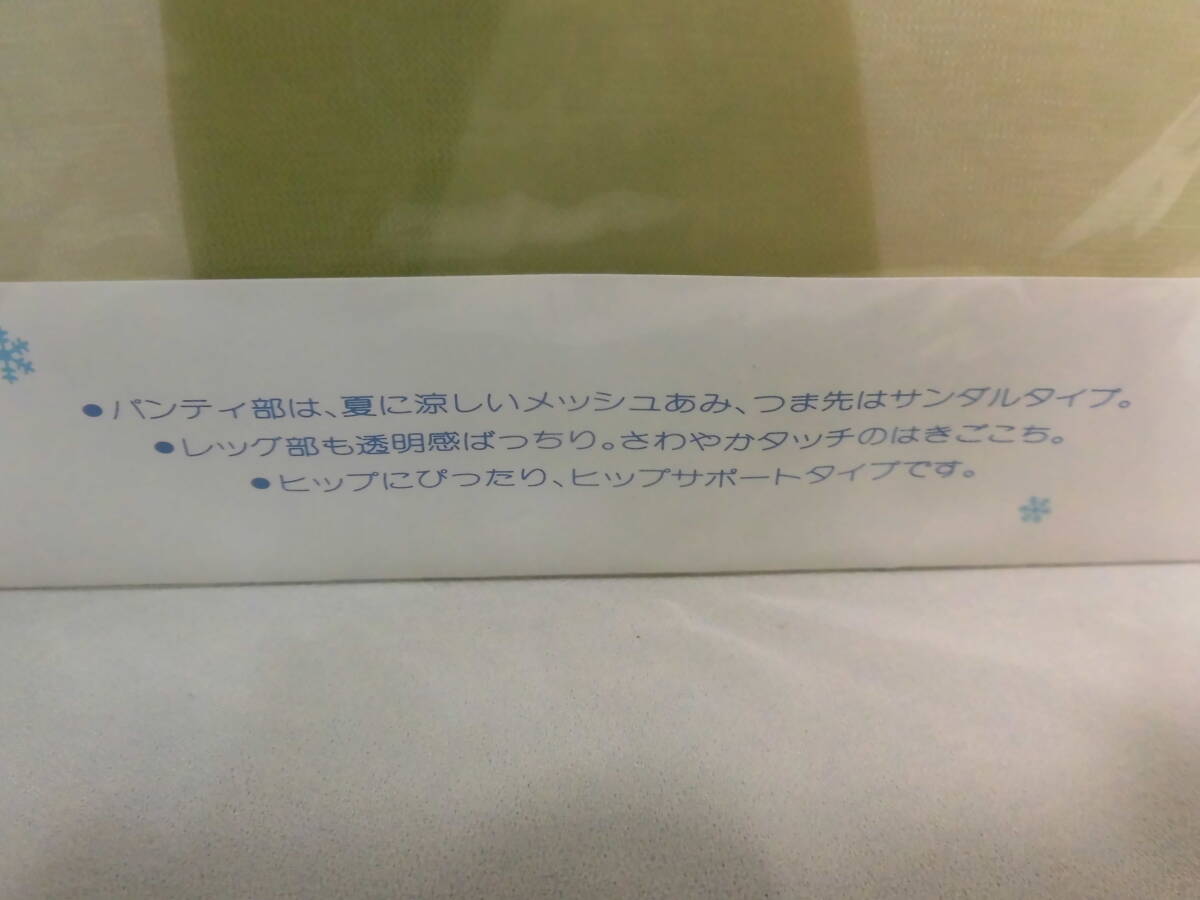 ●パンティ部は、夏に涼しいメッシュあみ、つま先はサンダルタイプ。
●レッグ部も透明感ばっちり。さわやかタッチのはきごこち。
●ヒップにぴったり、ヒップサポートタイプです。